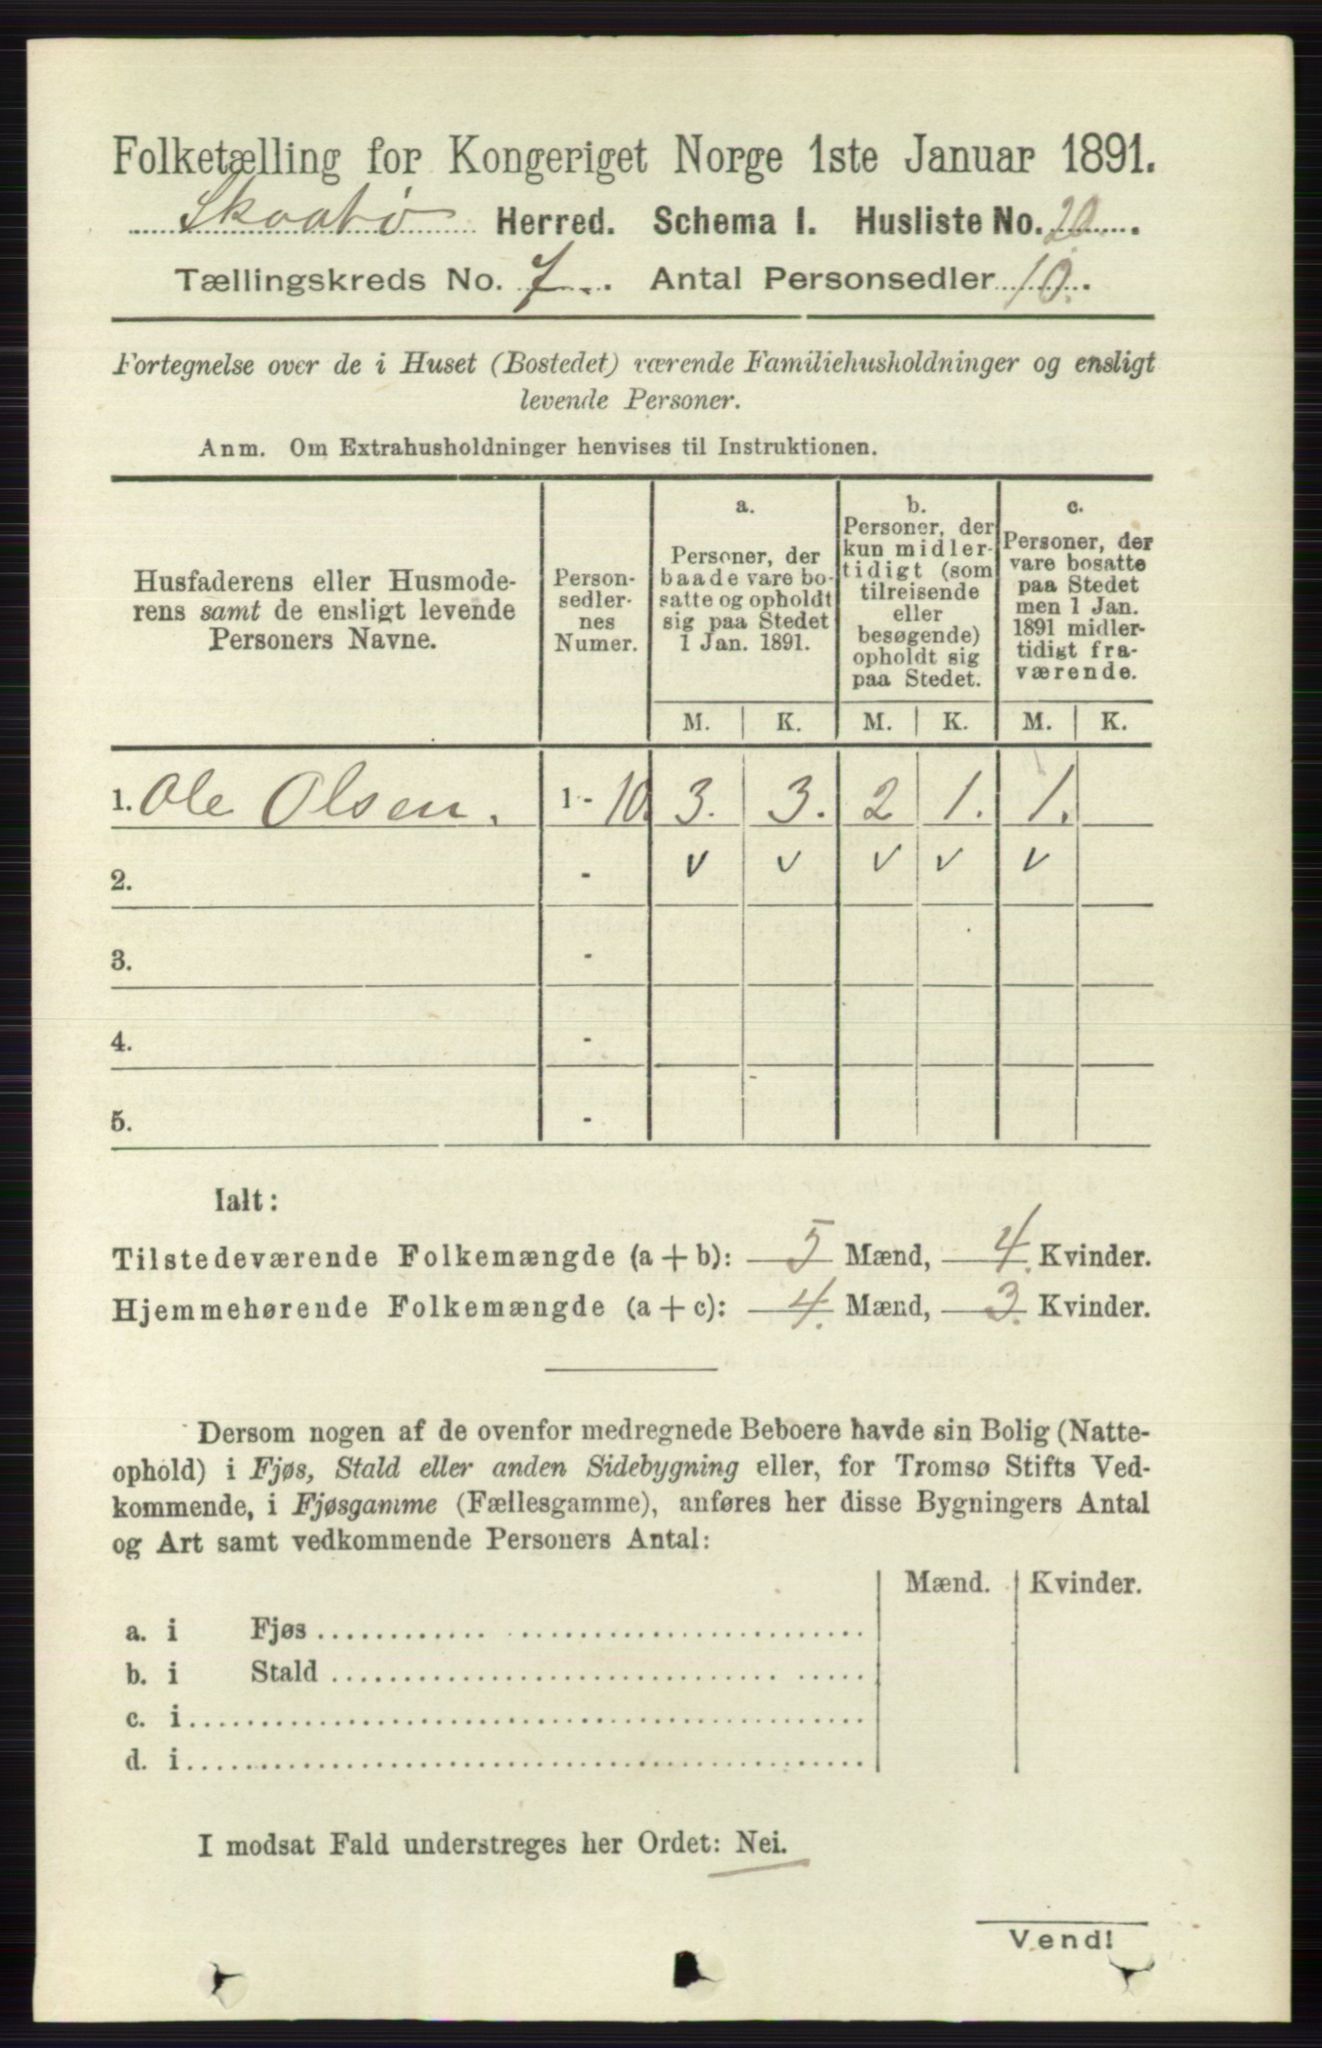 Folketælling for Kongeriget Norge 1ste Januar 1891.
Skaatø Herred. Schema I. Husliste No. 20
Tællingskreds No. 7. Antal Personsedler 10.
Fortegnelse over de i Huset (Bostedet) værende Familiehusholdninger og ensligt
levende Personer.
Anm. Om Extrahusholdninger henvises til Instruktionen.
Husfaderens eller Husmode-
rens samt de ensligt levende
Personers Navne.
Person-
sedler-
nes
Numer.
a.
Personer, der
baade vare bo-
satte og opholdt
sig paa Stedet
1 Jan. 1891.
b.
Personer, der
kun midler-
tidigt (som
tilreisende
eller
besøgende)
opholdt sig
paa Stedet.
c.
Personer, der
vare bosatte
paa Stedet
men 1 Jan.
1891 midler-
tidigt fra-
værende.
M. K. M. K. M. K.
1. Ole Olsen. 1 - 10. 3. 3. 2 1. 1.
2. - v v v v v
3. -
4. -
5. -
Ialt:
Tilstedeværende Folkemængde (a + b): 5 Mænd, 4. Kvinder.
Hjemmehørende Folkemængde (a + c): 4. Mænd, 3. Kvinder.
Dersom nogen af de ovenfor medregnede Beboere havde sin Bolig (Natte-
ophold) i Fjøs, Stald eller anden Sidebygning eller, for Tromsø Stifts Ved-
kommende, i Fjøsgamme (Fællesgamme), anføres her disse Bygningers Antal
og Art samt vedkommende Personers Antal:
Mænd. Kvinder.
a. i Fjøs
b. i Stald
c. i
d. i
I modsat Fald understreges her Ordet: Nei.
Vend!